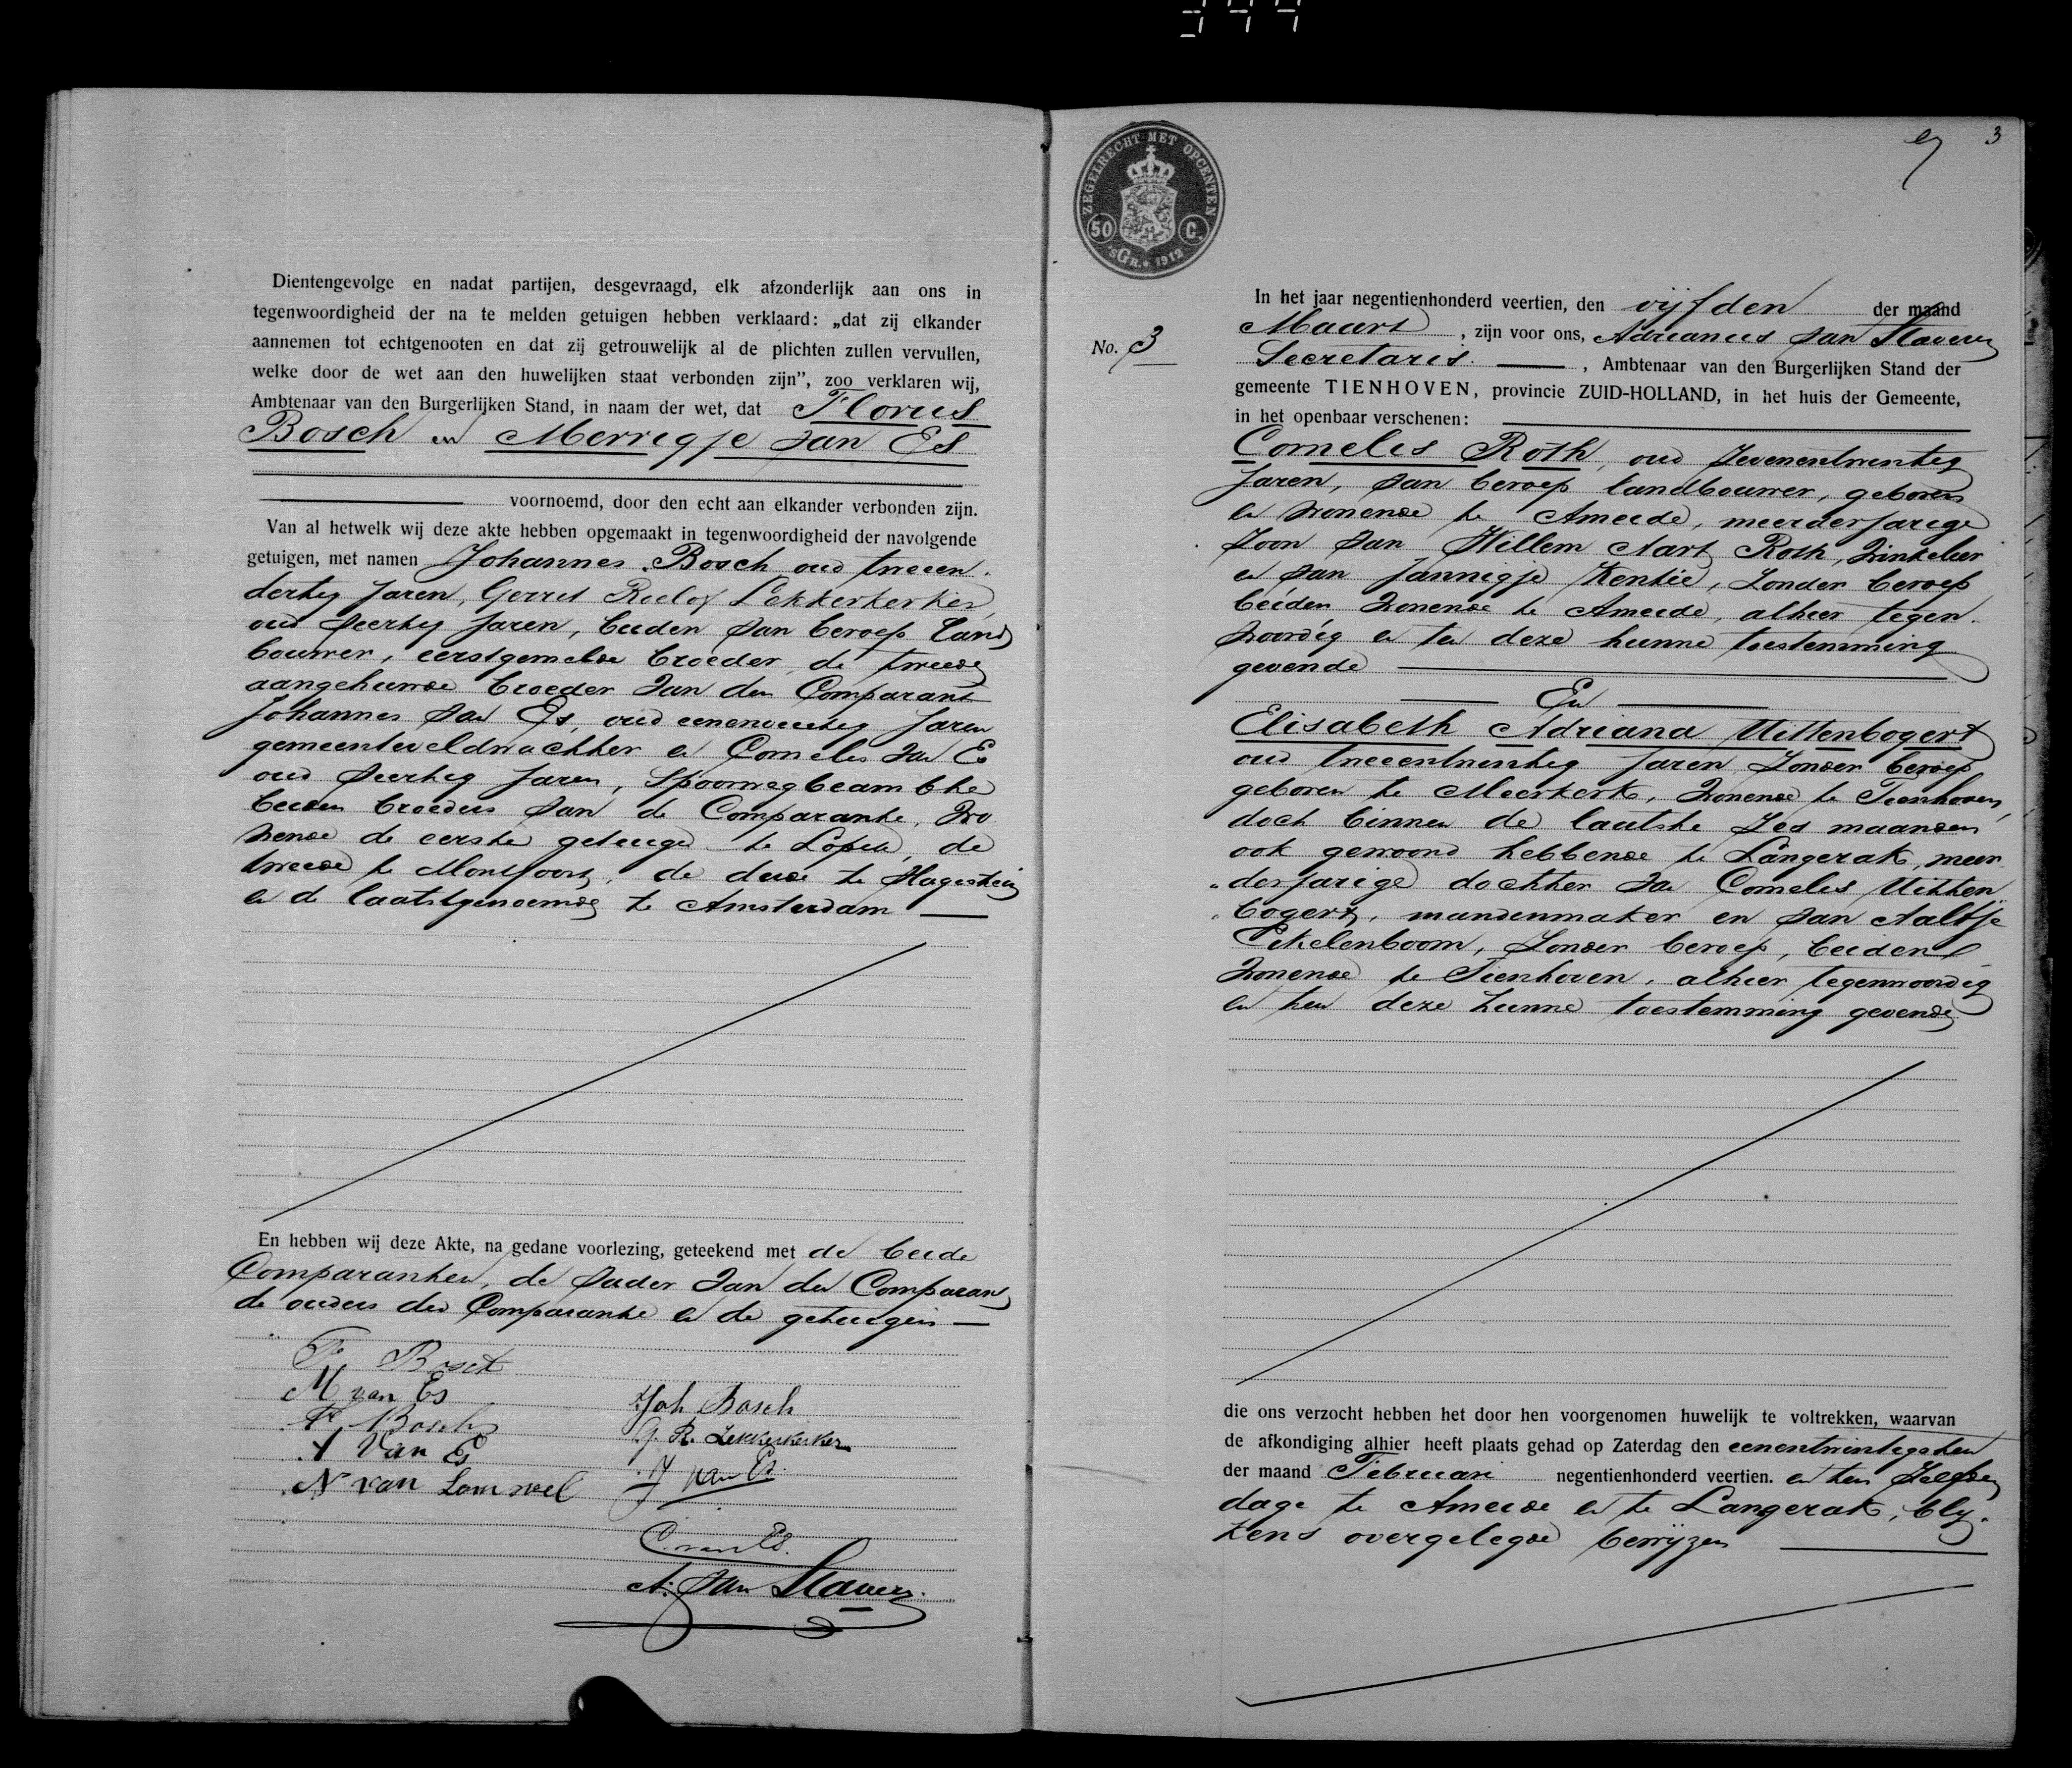 Dientengevolge en nadat partijen, desgevraagd, elk afzonderlijk aan ons in
tegenwoordigheid der na te melden getuigen hebben verklaard: „dat zij elkander
aannemen tot echtgenooten en dat zij getrouwelijk al de plichten zullen vervullen,
welke door de wet aan den huwelijken staat verbonden zijn”, zoo verklaren wij,
Ambtenaar van den Burgerlijken Stand, in naam der wet, dat Florus
Bosch en Merrigje van Es
voornoemd, door den echt aan elkander verbonden zijn.
Van al hetwelk wij deze akte hebben opgemaakt in tegenwoordigheid der navolgende
getuigen, met namen Johannes Bosch oud tweeen
dertig Jaren, Gerrit Roelof Lekkerkerker
oud veertig Jaren, beiden van beroep land
bouwer, eerstgemelde broeder, de tweede
aangehuwde broeder van den Comparant
Johannes van Es, oud eenenveertig Jaren
gemeenteveldwachter en Cornelis van Es
oud veertig Jaren, Spoorwegbeambte
beiden broeders van de Comparante, wo
nende de eerste getuige te Lopik, de
tweede te Montfoort, de derde te Hagestein
en de laatstgenoemde te Amsterdam
En hebben wij deze Akte, na gedane voorlezing, geteekend met de beide
Comparanten, de vader van den Comparant
de ouders der Comparante en de getuigen
Fs Bosch
M van Es
F Bosch
A Van Es
N van Lomwel
Joh Bosch
G. R. Lekkerkerker
J van Es.
C. van Es.
A. van Staveren.
3
ZEGELRECHT MET OPCENTEN
50 C.
'sGR. 1912
No. 3
In het jaar negentienhonderd veertien, den vijfden der maand
Maart, zijn voor ons, Adrianus van Staveren
Secretaris, Ambtenaar van den Burgerlijken Stand der
gemeente TIENHOVEN, provincie ZUID-HOLLAND, in het huis der Gemeente,
in het openbaar verschenen:
Cornelis Roth, oud zevenentwintig
Jaren, van beroep landbouwer, geboren
en wonende te Ameide, meerderjarige
Zoon van Willem Aart Roth, winkelier
en van Jannigje Kentie, Zonder beroep
beiden wonende te Ameide, alhier tegen
woordig en ten deze hunne toestemming
gevende
En
Elisabeth Adriana Uittenbogert
oud tweeentwintig Jaren Zonder beroep
geboren te Meerkerk, wonende te Tienhoven,
doch binnen de laatste zes maanden
ook gewoond hebbende te Langerak, meer
derjarige dochter van Cornelis Uitten
bogert, mandenmaker en van Aaltje
Eikelenboom, Zonder beroep, beiden
wonende te Tienhoven, alhier tegenwoordig
en ten deze hunne toestemming gevende
die ons verzocht hebben het door hen voorgenomen huwelijk te voltrekken, waarvan
de afkondiging alhier heeft plaats gehad op Zaterdag den eenentwintigsten
der maand Februari negentienhonderd veertien. en ten zelfden
dage te Ameide en te Langerak, bly
kens overgelegde bewyzen